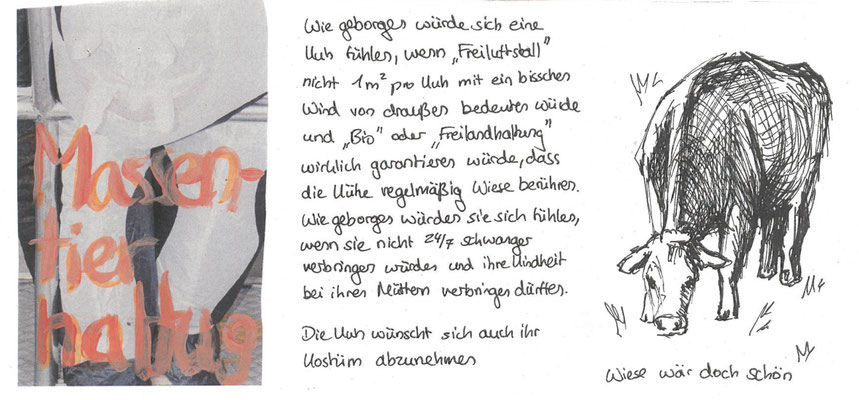 Massen-
tier
haltug
Wie geborgen würde sich eine
Kuh fühlen, wenn „Freiluftstall"
nicht 1m² pro Kuh mit ein bisschen
Wind von draußen bedeuten würde
und „Bio" oder „Freilandhaltung"
wirklich garantieren würde, dass
die Kühe regelmäßig Wiese berühren.
Wie geborgen würden sie sich fühlen,
wenn sie nicht 24/7 schwanger
verbringen würden und ihre Kindheit
bei ihren Müttern verbringen dürften.
Die Kuh wünscht sich auch ihr
Kostüm abzunehmen
Wiese wär doch schön